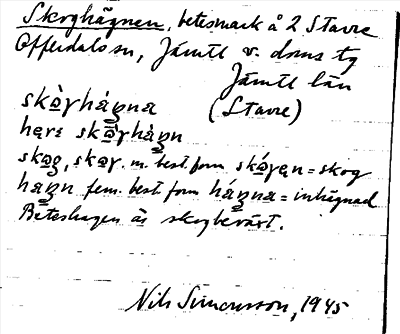 Skoghägnen, betesmark å 2 Stavre
Offerdals sn, Jämtl v. doms tg
Jämtl län
skòghágna (Stavre)
hęrɛ skòghágn
skog, skoγ. m. best. form skóγęn = skog
hagn fem. best form hágna = inhägnad
Beteshagen är skogbevärt.
Nils Simonsson, 1945